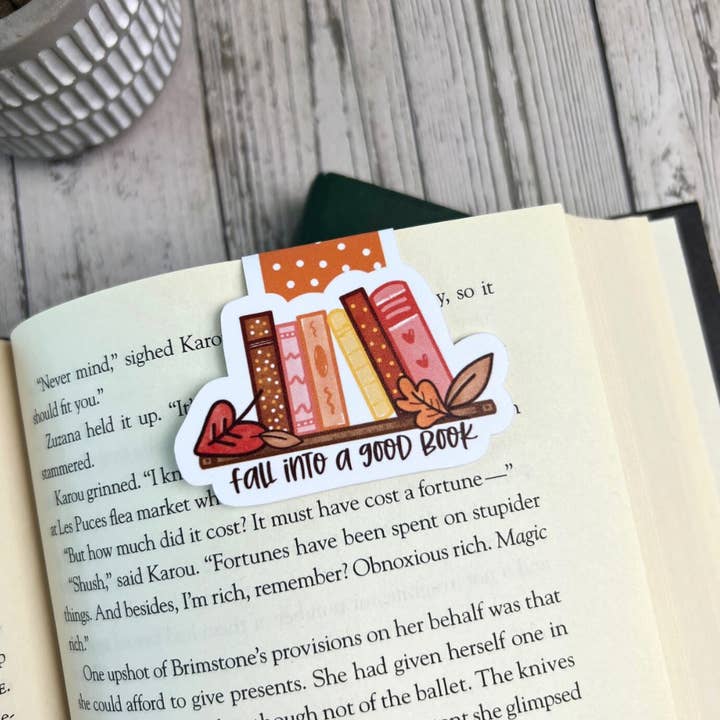 y, so it
"Never mind," sighed Karou
should fit you."
Zuzana held it up. "It'
stammered.
Karou grinned. "I kn
at Les Puces flea market wh
"But how much did it cost? It must have cost a fortune—"
"Shush," said Karou. "Fortunes have been spent on stupider
things. And besides, I'm rich, remember? Obnoxious rich. Magic
rich."
One upshot of Brimstone's provisions on her behalf was that
she could afford to give presents. She had given herself one in
though not of the ballet. The knives
she glimpsed
fall into a good Book